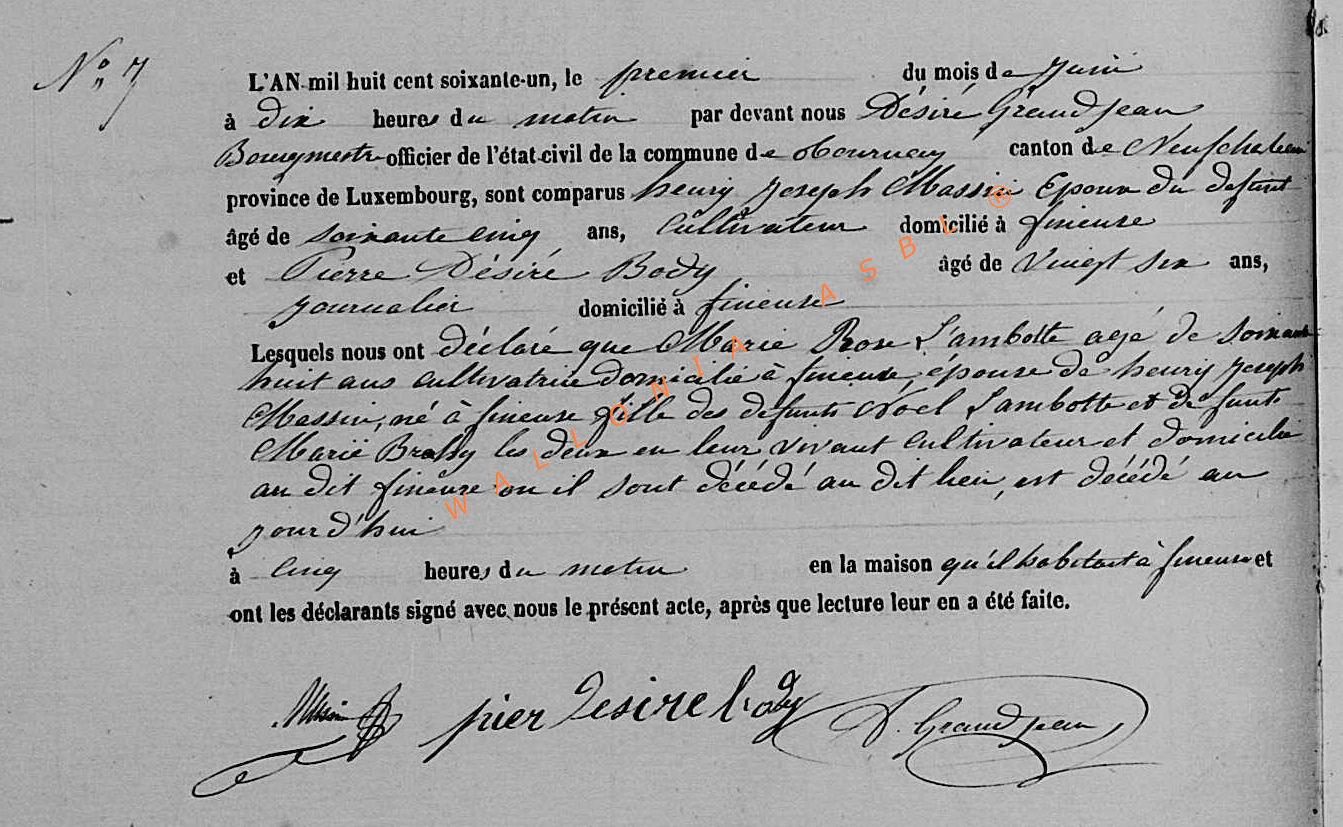 N° 7
L'AN mil huit cent soixante-un, le premier du mois de juin
à dix heures du matin par devant nous Désiré Grandjean
Bourgmestre officier de l'état civil de la commune de Tournay canton de Neufchateau
province de Luxembourg, sont comparus henry joseph Massin Epoux du defunt
âgé de soixante cinq ans, Cultivateur domicilié à fineuse
et Pierre Désiré Body âgé de Vingt six ans,
journalier domicilié à fineuse
Lesquels nous ont déclaré que Marie Rose Lambotte agé de soixante
huit ans cultivatrice domicilié à fineuse, épouse de henry joseph
Massin, né à fineuse fille des defunts Noel Lambotte et defunte
Marie les deux en leur vivant cultivateur et domicilié
au dit fineuse ou il sont décédé au dit lieu, est décédé au
jourd'hui
à cinq heures du matin en la maison qu'il habitait à fineuse et
ont les déclarants signé avec nous le présent acte, après que lecture leur en a été faite.
Massin pier desire body D. Grandjean
WALLONIA ASBL ®